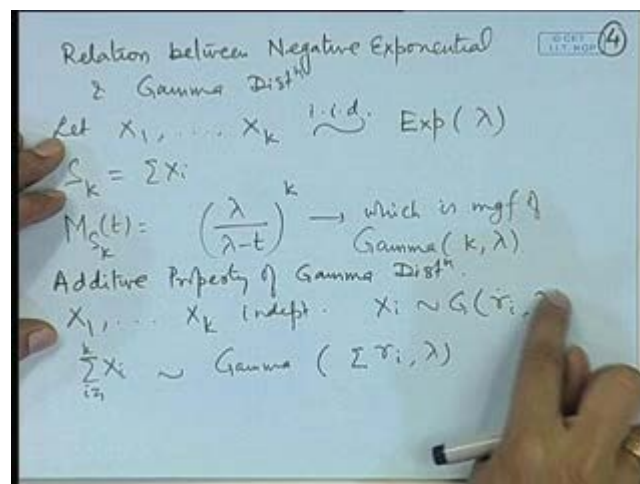 Relation between Negative Exponential
& Gamma Distⁿ
④
Let X₁, .... X_k i.i.d. ~ Exp(λ)
S_k = ΣXi
M_{S_k}(t) = (λ/(λ-t))^k → which is mgf of
Gamma(k, λ)
Additive Property of Gamma Distⁿ.
X₁, ... X_k indept. Xi ~ G(ri,
Σ_{i=1}^{k} Xi ~ Gamma (Σ ri, λ)